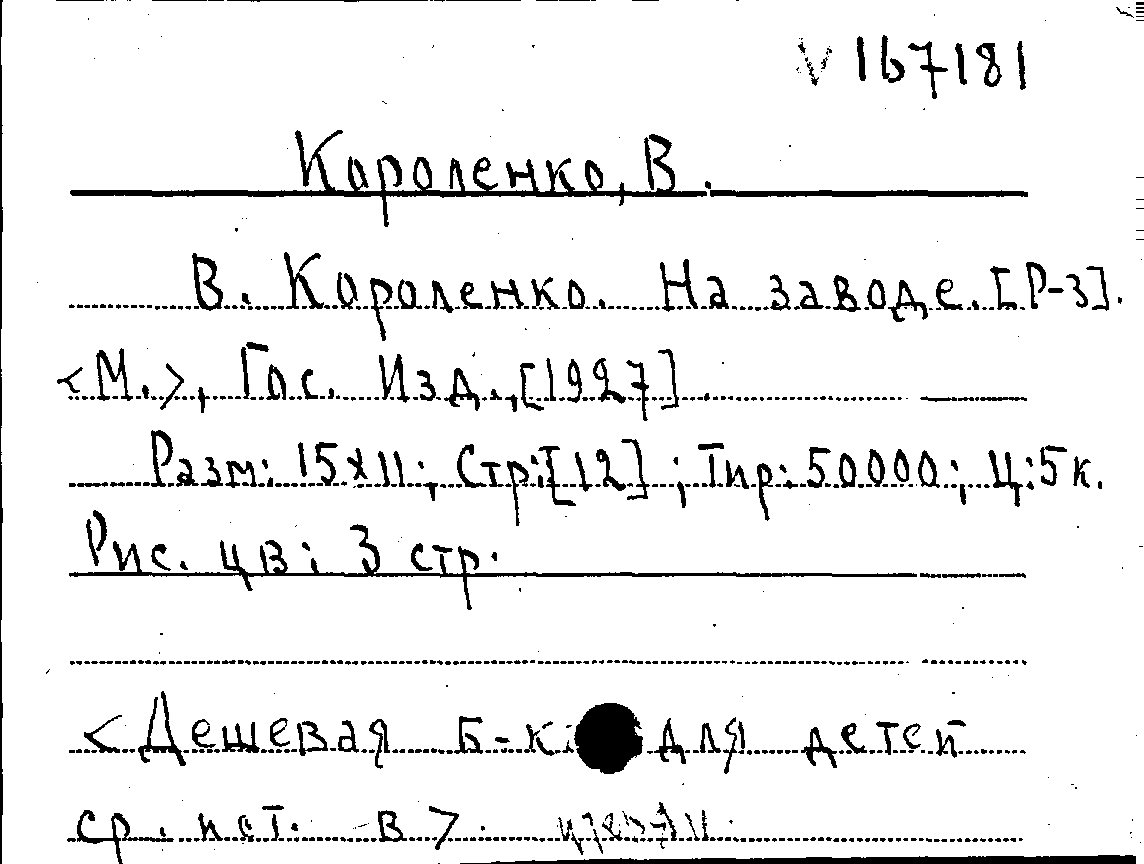 V 167181
Короленко, В.
В. Короленко. На заводе. [Р-з].
<М.>, Гос. Изд., [1927]
Разм: 15х11; Стр: [12]; Тир: 50000; Ц: 5к.
Рис. цв: 3 стр.
<Дешевая Б-ка для детей
ср. и ст. в>.